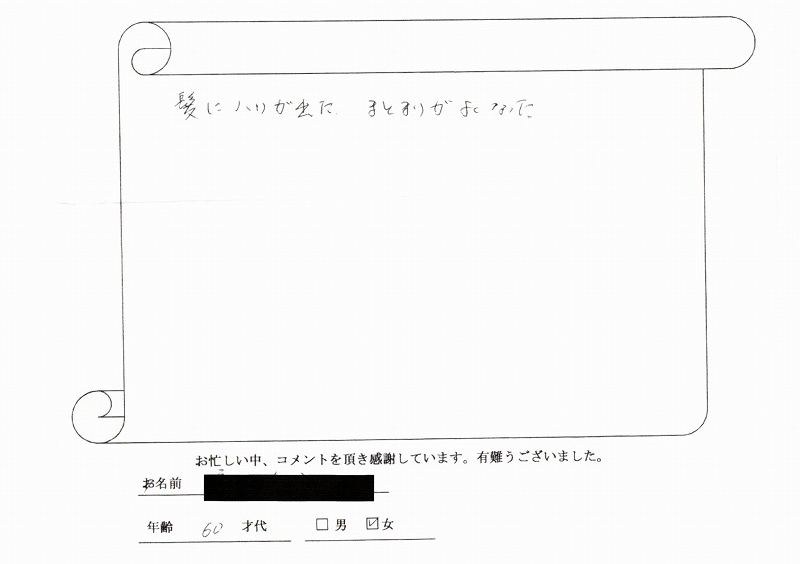 髪にハリが出た. まとまりがよくなった
お忙しい中、コメントを頂き感謝しています。有難うございました。
お名前
年齢 60 才代 □ 男 ☑ 女